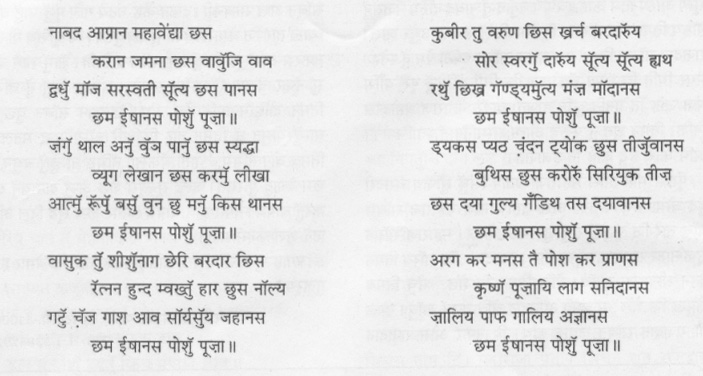 नाबद आप्रान महावेंद्या छस
करान जमना छस वावुॅजि वाव
द्रधुॅ मॉज सरस्वती सूॅत्य छस पानस
छम ईषानस पोशुॅ पूज़ा॥
ज़ंगुॅ थाल अनुॅ वुॅञ पानुॅ छस स्यद्धा
व्यूग लेखान छस करमुॅ लीखा
आत्मुॅ रूॅपुॅ बसुॅ वुन छु मनुॅ किस थानस
छम ईषानस पोशुॅ पूज़ा॥
वासुक तुॅ शीशुॅनाग छेरि बरदार छिस
रॅत्नन हुन्द म्वख्तुॅ हार छुस नॉल्य
गटुॅ च़ॅज गाश आव सॉर्यसुॅय जहानस
छम ईषानस पोशुॅ पूज़ा॥
कुबीर तु वरुण छिस ख़र्च बरदारुॅय
सोर स्वरगुॅ दारुॅय सूॅत्य सूॅत्य ह्यथ
रथुॅ छिख़ गॅण्ड्यमुॅत्य मंज़ मॉदानस
छम ईषानस पोशुॅ पूज़ा॥
ड्यकस प्यठ च़ंदन ट्योक छुस तीज़ुॅवानस
बुथिस छुस करोरुॅ सिरियुक तीज़
छस दया गुल्य गॅंडिथ तस दयावानस
छम ईषानस पोशुॅ पूज़ा॥
अरग कर मनस तै पोश कर प्राणस
कृष्णुॅ पूज़ायि लाग सनिदानस
ज़ालिय पाफ गालिय अज्ञानस
छम ईषानस पोशुॅ पूज़ा॥